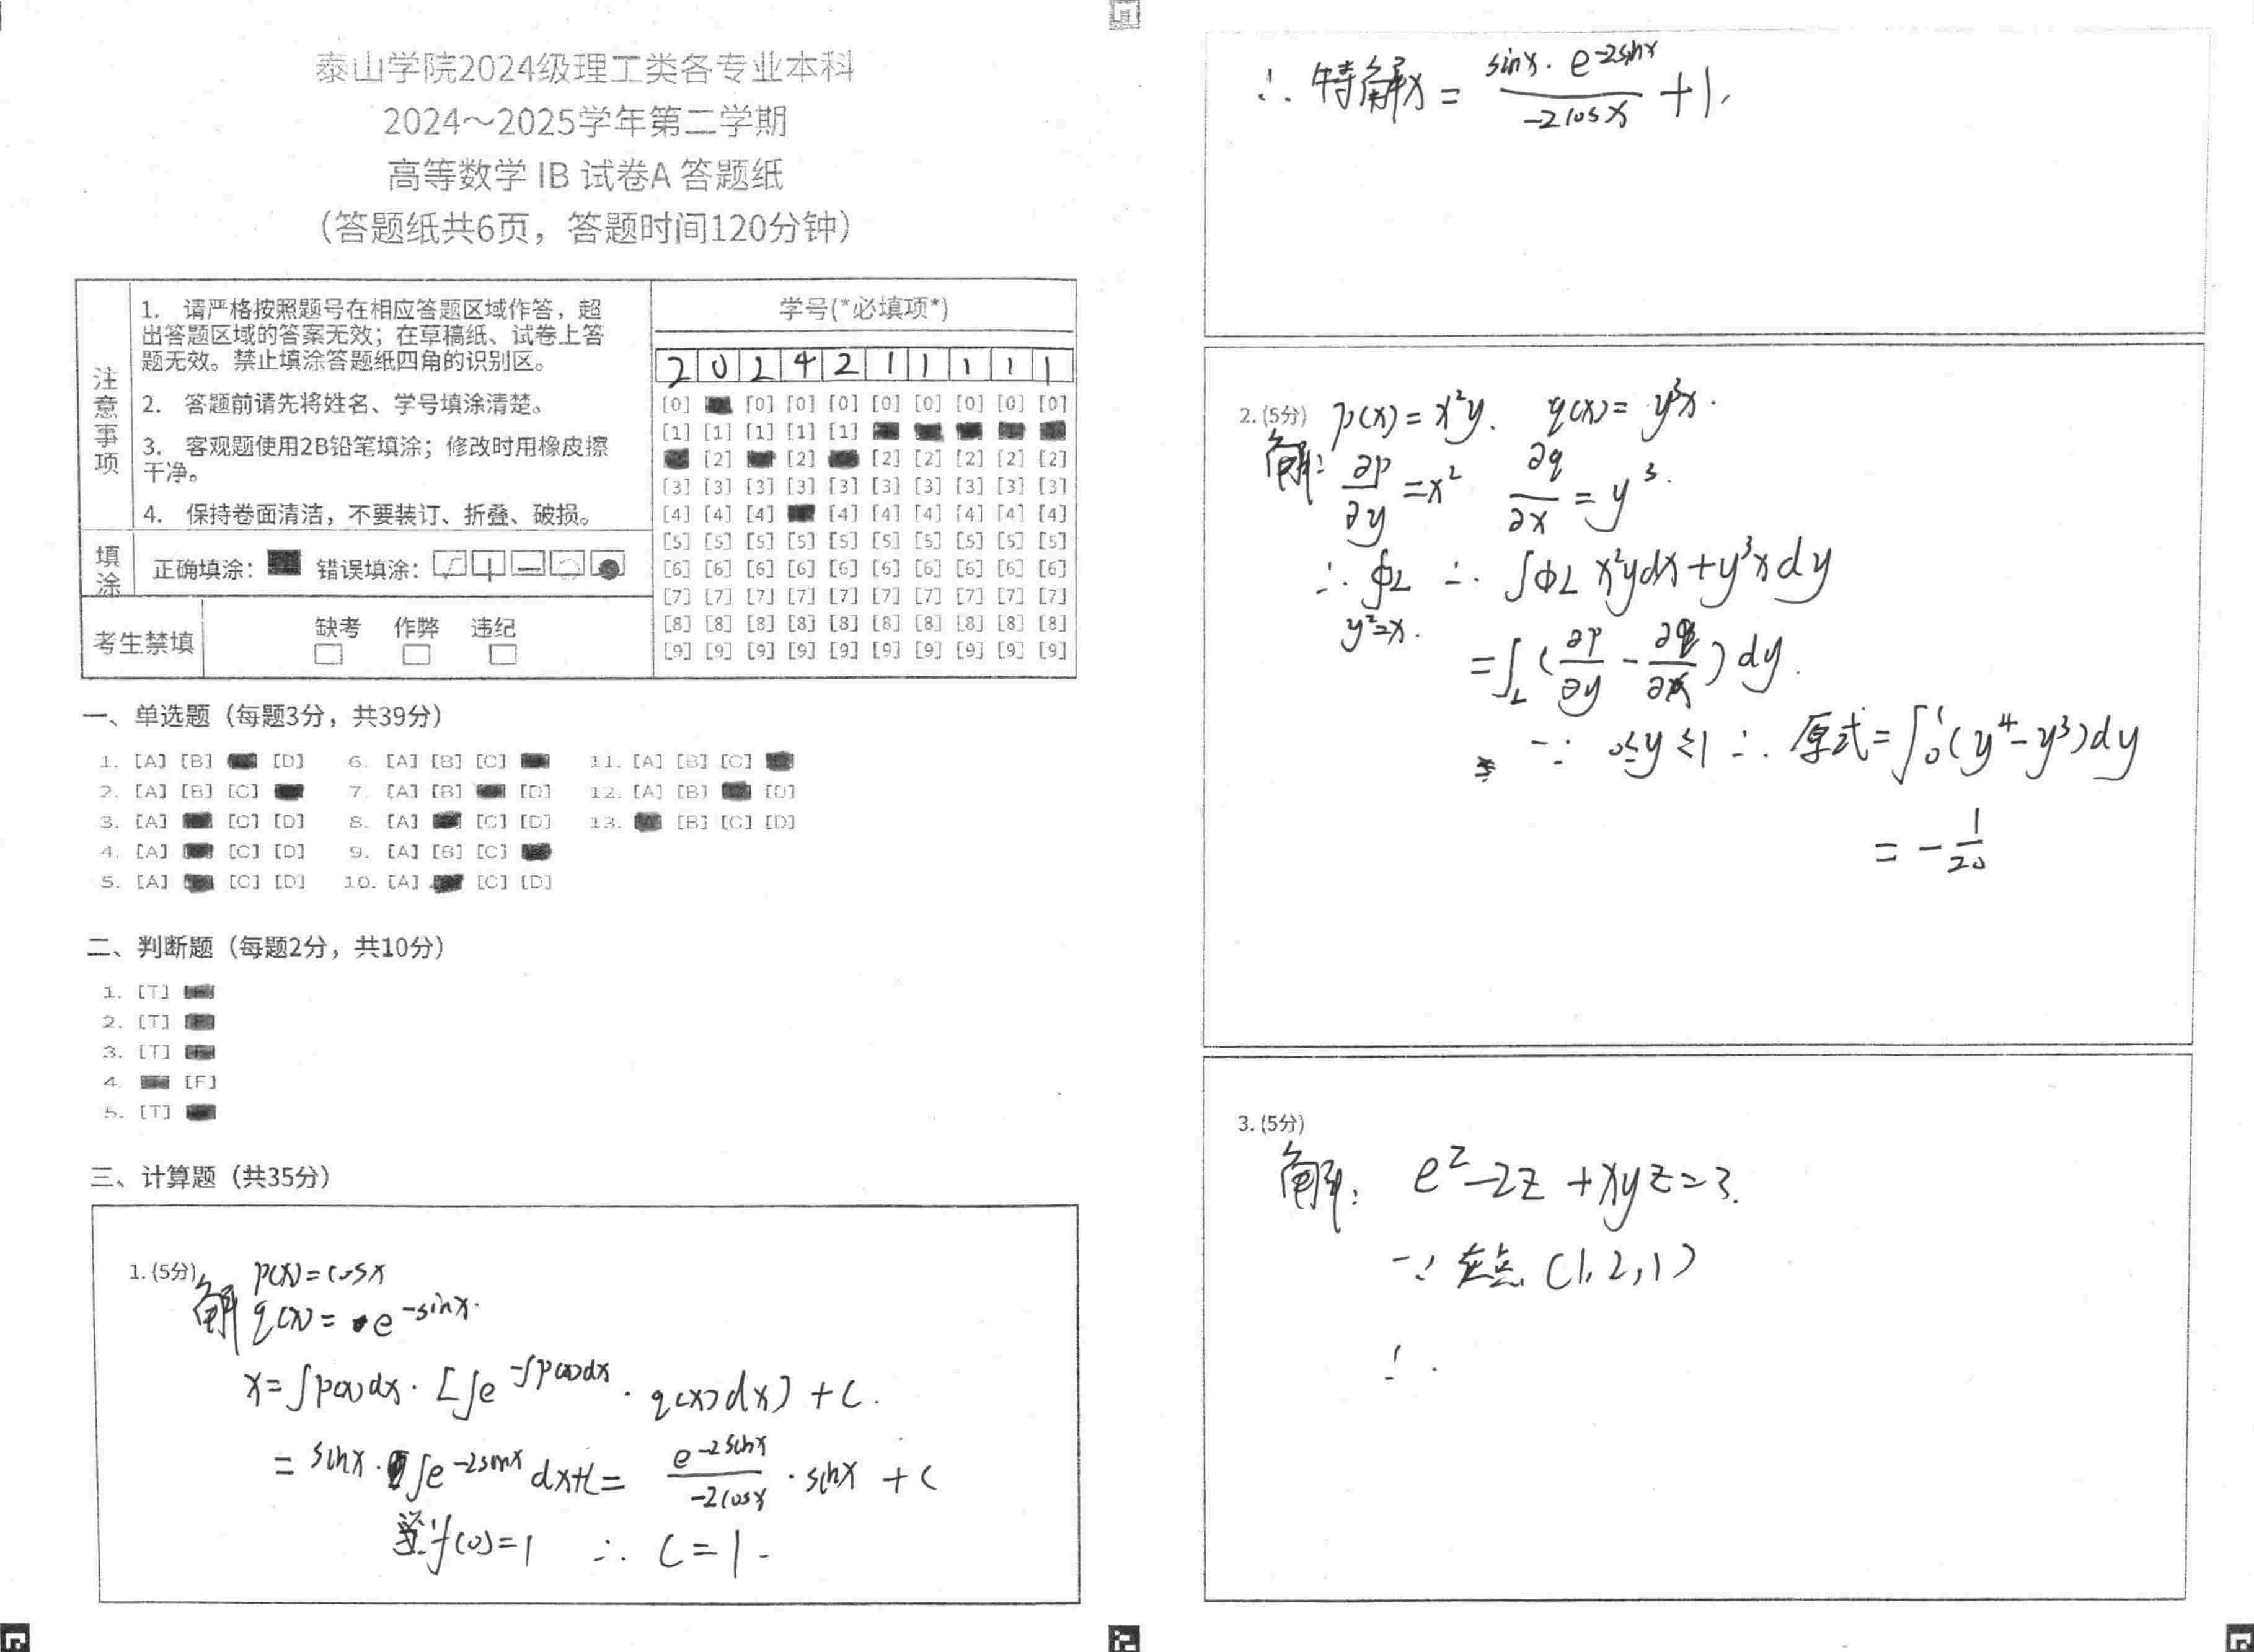 泰山学院2024级理工类各专业本科
2024～2025学年第二学期
高等数学 IB 试卷A 答题纸
（答题纸共6页，答题时间120分钟）
注意事项
1. 请严格按照题号在相应答题区域作答，超
出答题区域的答案无效；在草稿纸、试卷上答
题无效。禁止填涂答题纸四角的识别区。
2. 答题前请先将姓名、学号填涂清楚。
3. 客观题使用2B铅笔填涂；修改时用橡皮擦
干净。
4. 保持卷面清洁，不要装订、折叠、破损。
填涂
正确填涂： 错误填涂：
考生禁填
缺考 作弊 违纪
学号(*必填项*)
2 0 2 4 2 1 1 1 1 1
[0] [0] [0] [0] [0] [0] [0] [0] [0]
[1] [1] [1] [1] [1]
[2] [2] [2] [2] [2] [2] [2]
[3] [3] [3] [3] [3] [3] [3] [3] [3] [3]
[4] [4] [4] [4] [4] [4] [4] [4] [4]
[5] [5] [5] [5] [5] [5] [5] [5] [5] [5]
[6] [6] [6] [6] [6] [6] [6] [6] [6] [6]
[7] [7] [7] [7] [7] [7] [7] [7] [7] [7]
[8] [8] [8] [8] [8] [8] [8] [8] [8] [8]
[9] [9] [9] [9] [9] [9] [9] [9] [9] [9]
一、单选题（每题3分，共39分）
1. [A] [B] [D] 6. [A] [B] [C] 11. [A] [B] [C]
2. [A] [B] [C] 7. [A] [B] [D] 12. [A] [B] [D]
3. [A] [C] [D] 8. [A] [C] [D] 13. [B] [C] [D]
4. [A] [C] [D] 9. [A] [B] [C]
5. [A] [C] [D] 10. [A] [C] [D]
二、判断题（每题2分，共10分）
1. [T]
2. [T]
3. [T]
4. [F]
5. [T]
三、计算题（共35分）
1. (5分) p(x)=cosx
解 q(x)= e^{-sinx}.
x=∫p(x)dx·[∫e^{-∫p(x)dx}·q(x)dx]+C.
=sinx·∫e^{-2sinx}dx+C= \frac{e^{-2sinx}}{-2cosx}·sinx+C
f(0)=1 ∴ C=1.
∴特解x= \frac{sinx·e^{-2sinx}}{-2cosx}+1.
2. (5分) p(x)=x²y. q(x)=y³x.
解: \frac{∂p}{∂y}=x² \frac{∂q}{∂x}=y³.
∴∮L ∴ ∫ΦL x²ydx+y³xdy
y²=x.
=∫_L(\frac{∂p}{∂y}-\frac{∂q}{∂x})dy.
∵ 0≤y≤1 ∴ 原式=∫_0^1(y⁴-y³)dy
=-\frac{1}{20}
3. (5分)
解: e^z-2z+xyz=3.
∵ 在点(1,2,1)
∴.